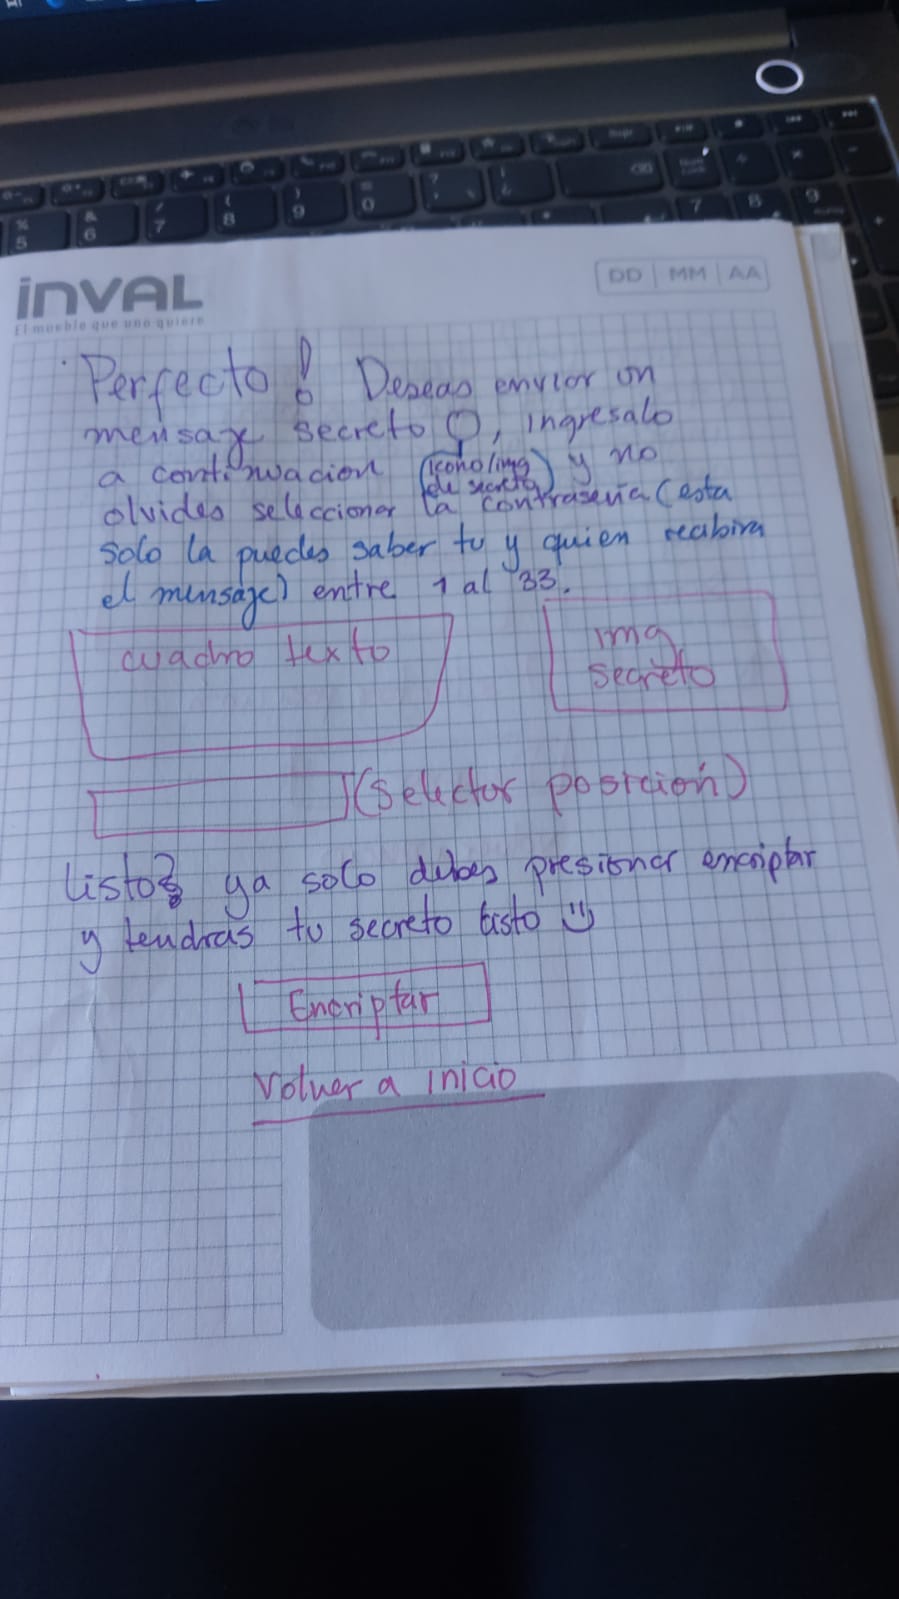 inVAL
El mueble que uno quiere
DD | MM | AA
Perfecto! Deseas enviar un
mensaje secreto, ingresalo
a continuacion (icono/img de secreto) y no
olvides seleccionar la contraseña (esta
solo la puedes saber tu y quien recibira
el mensaje) entre 1 al 33.
cuadro texto
img
secreto
(selector posicion)
Listo? ya solo debes presionar encriptar
y tendras tu secreto listo
Encriptar
Volver a inicio